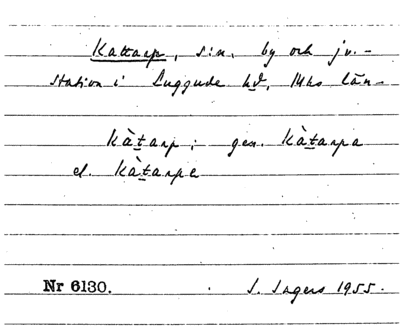 Kattarp, s:n, by och jv.-
station i Luggude hd, Mhs län-
kàt̲arp; gen. kàt̲arpa
el. kàt̲arpe
Nr 6130. I. Ingers 1955.